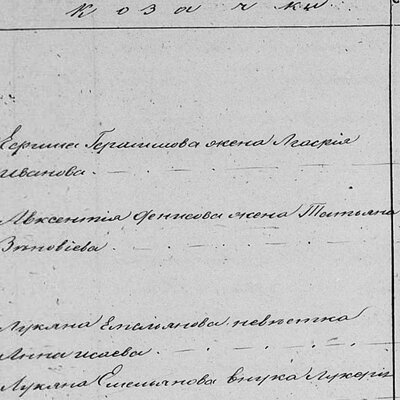 козачки
Ефрима Герасимова жена Агафія
Иванова
Авксентія Денисова жена Татьяна
Зиновіева
Лукяна Емельянова невѣстка
Анна Исаева
Лукяна Емельянова внука Лукерья